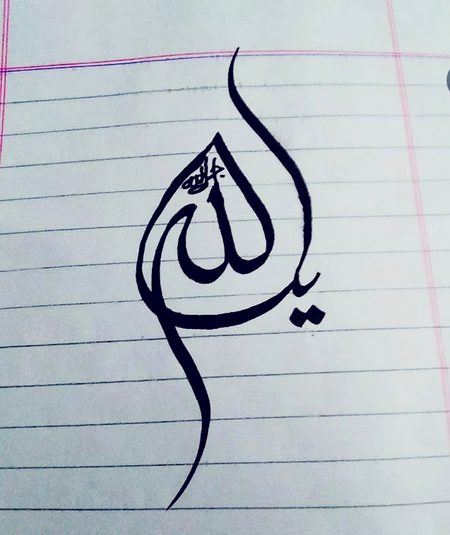 يا الله
جل جلاله